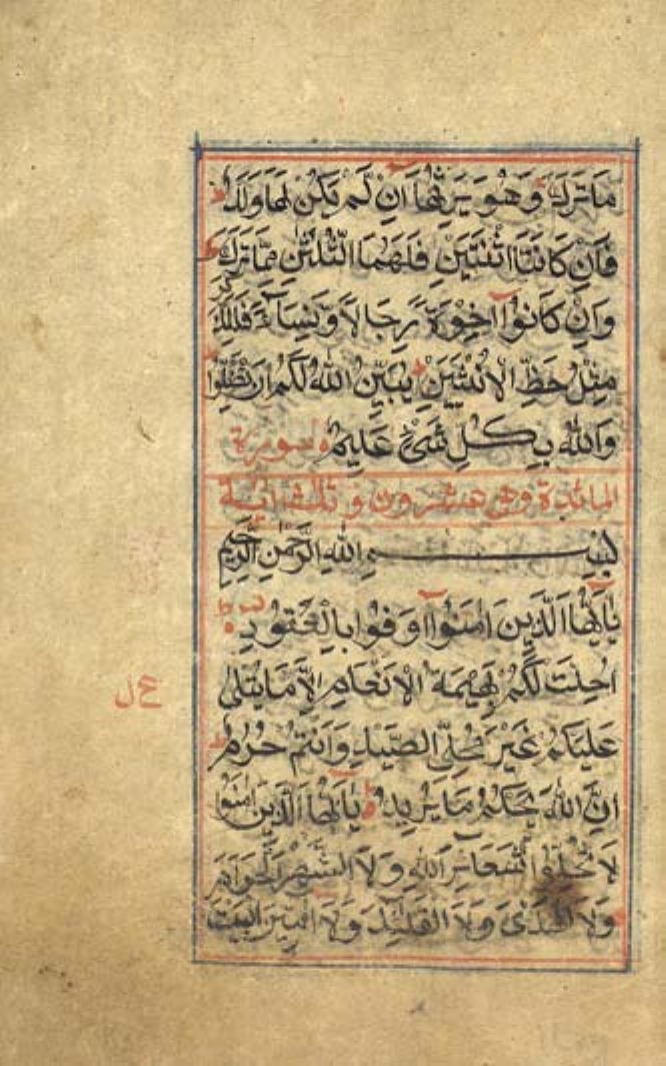 مَاتَرَكَ وَهُوَ يَرِثُهَا اِنْ لَمْ يَكُنْ لَهَا وَلَدٌ ط
فَاِنْ كَانَتَا اثْنَتَيْنِ فَلَهُمَا الثُّلُثٰنِ مِمَّا تَرَكَ ط
وَاِنْ كَانُوْا اِخْوَةً رِجَالًا وَنِسَآءً فَلِلذَّكَرِ
مِثْلُ حَظِّ الْاُنْثَيَيْنِ ط يُبَيِّنُ اللهُ لَكُمْ اَنْ تَضِلُّوْا ط
وَاللهُ بِكُلِّ شَیْءٍ عَلِيْمٌ ه سورة
المائدة وهى عشرون و ثلث اية
بِسْمِ اللهِ الرَّحْمٰنِ الرَّحِيْمِ
يٰاَيُّهَا الَّذِيْنَ اٰمَنُوْا اَوْفُوْا بِالْعُقُوْدِ ه ط
اُحِلَّتْ لَكُمْ بَهِيْمَةُ الْاَنْعَامِ اِلَّا مَا يُتْلٰى
عَلَيْكُمْ غَيْرَ مُحِلِّى الصَّيْدِ وَاَنْتُمْ حُرُمٌ ط
اِنَّ اللهَ يَحْكُمُ مَا يُرِيْدُ ه يٰاَيُّهَا الَّذِيْنَ اٰمَنُوْا
لَا تُحِلُّوْا شَعَائِرَ اللهِ وَلَا الشَّهْرَ الْحَرَامَ
وَلَا الْهَدْىَ وَلَا الْقَلَئِدَ وَلَا اٰمِّيْنَ الْبَيْتَ